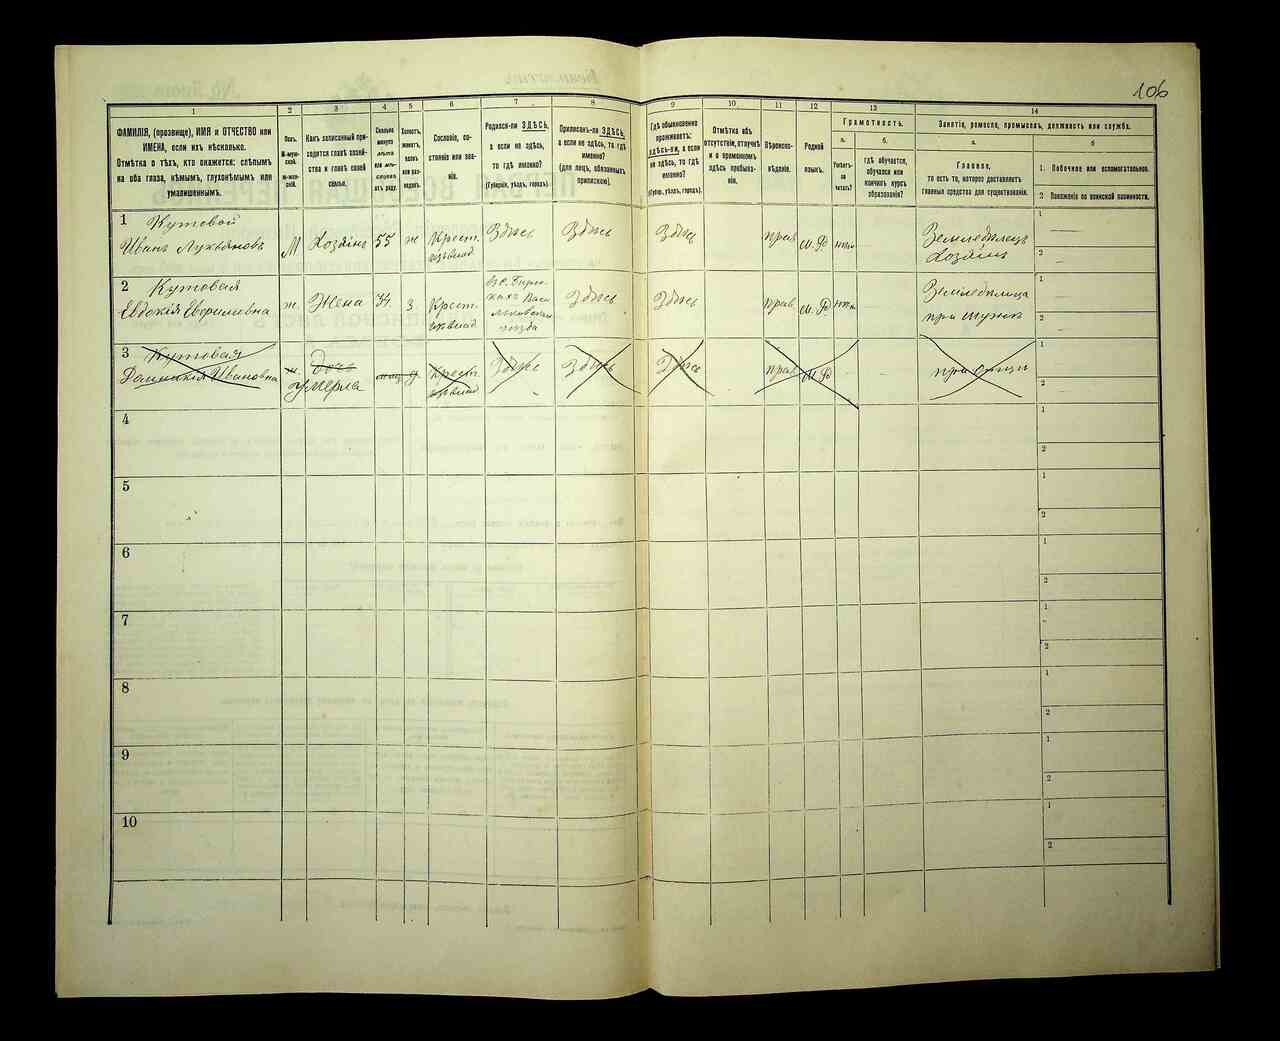 106
1
2
3
4
5
6
7
8
9
10
11
12
13
14
ФАМИЛІЯ, (прозвище), ИМЯ и ОТЧЕСТВО или
ИМЕНА, если ихъ нѣсколько.
Отмѣтка о тѣхъ, кто окажется: слѣпымъ
на оба глаза, нѣмымъ, глухонѣмымъ или
умалишеннымъ.
Полъ.
М-муж-
ской.
Ж-жен-
скій.
Какъ записанный при-
ходится главѣ хозяй-
ства и главѣ своей
семьи.
Сколько
минуло
лѣтъ
Холостъ,
женатъ,
вдовъ
или раз-
веденъ.
Сословіе, со-
стояніе или зва-
ніе.
Родился-ли ЗДѢСЬ,
а если не здѣсь,
то гдѣ именно?
(Губернія, уѣздъ, городъ).
Приписанъ-ли ЗДѢСЬ,
а если не здѣсь, то гдѣ
именно?
(для лицъ, обязанныхъ
припискою).
Гдѣ обыкновенно
проживаетъ:
здѣсь-ли, а если
не здѣсь, то гдѣ
именно?
(Губерн., уѣздъ, городъ).
Отмѣтка объ
отсутствіи, отлучкѣ
и о временномъ
здѣсь пребыва-
ніи.
Вѣроиспо-
вѣданіе.
Родной
языкъ.
Грамотность.
а.
б.
Умѣетъ-
ли
читать?
гдѣ обучается,
обучался или
кончилъ курсъ
образованія?
Занятіе, ремесло, промыселъ, должность или служба.
а.
б
Главное,
то есть то, которое доставляетъ
главныя средства для существованія.
1. Побочное или вспомогательное.
2 Положеніе по воинской повинности.
1
Кутовой
Иванъ Лукьяновъ
М
Хозяинъ
55
ж
Крест.
Здѣсь
Здѣсь
Здѣсь
прав
М. Р
нѣтъ
Земледѣлецъ
Хозяинъ
1
2
2
Кутовая
Евдокія Ефримовна
ж.
Жена
34.
3
Крест.
Здѣсь
Здѣсь
прав.
М. Р
нѣтъ
Земледѣлица
при мужѣ
1
2
3
Кутовая
Ивановна
ж.
дочь
умерла
Крест.
Здѣсь
Здѣсь
Здѣсь
прав.
М Р
при отцѣ
1
2
4
1
2
5
1
2
6
1
2
7
1
2
8
1
2
9
1
2
10
1
2